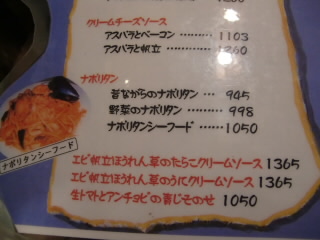 クリームチーズソース
アスパラとベーコン ‥‥‥‥ 1103
アスパラと帆立 ‥‥‥‥‥ 1260
ナポリタン
昔ながらのナポリタン ‥‥ 945
野菜のナポリタン ‥‥‥ 998
ナポリタンシーフード ‥‥‥ 1050
ナポリタンシーフード
エビ帆立ほうれん草のたらこクリームソース 1365
エビ帆立ほうれん草のうにクリームソース 1365
生トマトとアンチョビの青じそのせ 1050